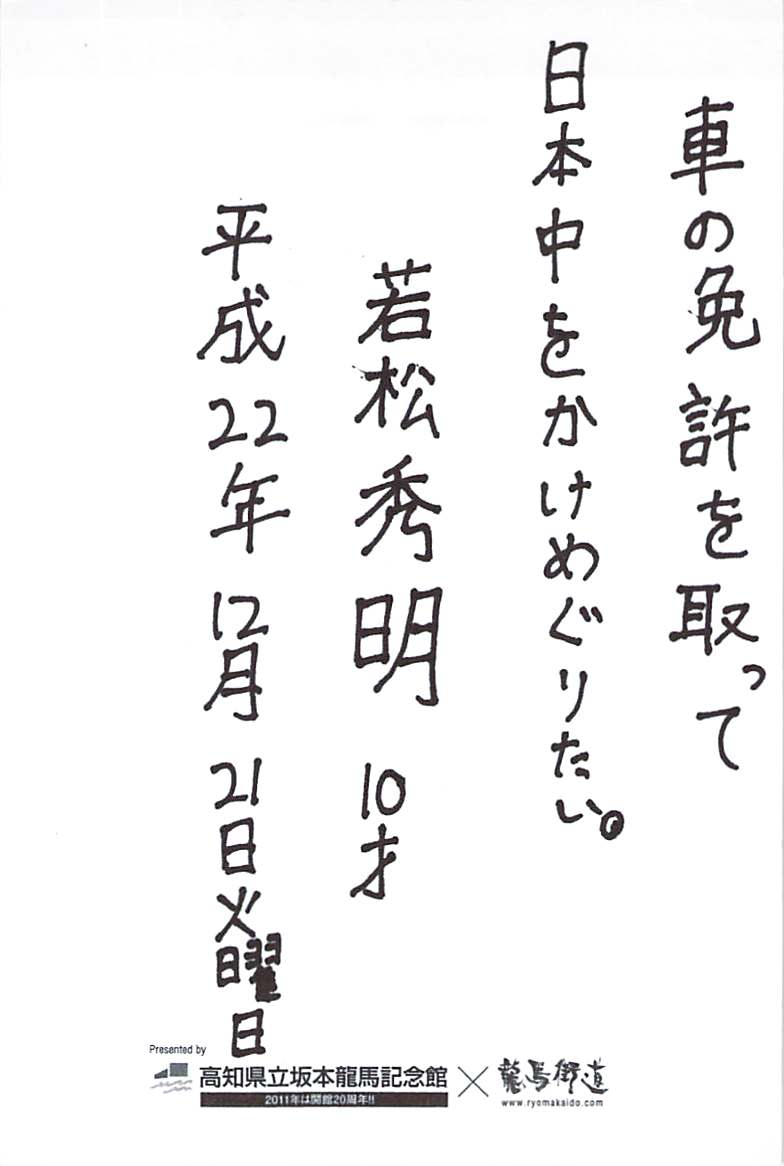 車の免許を取って
日本中をかけめぐりたい。
若松秀明 10才
平成22年 12月 21日火曜日
Presented by
高知県立坂本龍馬記念館 × 龍馬街道
2011年は開館20周年!!
www.ryomakaido.com